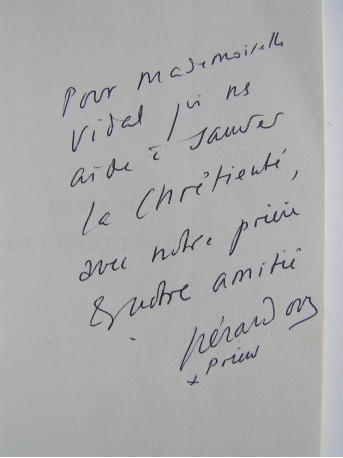 Pour mademoiselle
Vidal qui ns
aide à sauver
la Chrétienté,
avec notre prière
& notre amitié
gérard osb
+ Prieur
DEMAIN
LA CHRÉTIENTÉ